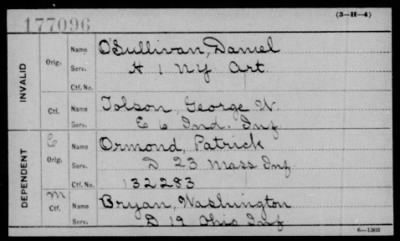 177096
(3-H-4)
INVALID
Orig.
Name O'Sullivan, Daniel
Serv. A 1 NY Art.
Ctf. No.
Ctf.
Name Tolson, George W.
Serv. E 6 Ind. Inf
DEPENDENT
C
Orig.
Name Ormond, Patrick
Serv. D 23 Mass Inf
Ctf. No. 132283
M
Ctf.
Name Bryan, Washington
Serv. D 19 Ohio Inf